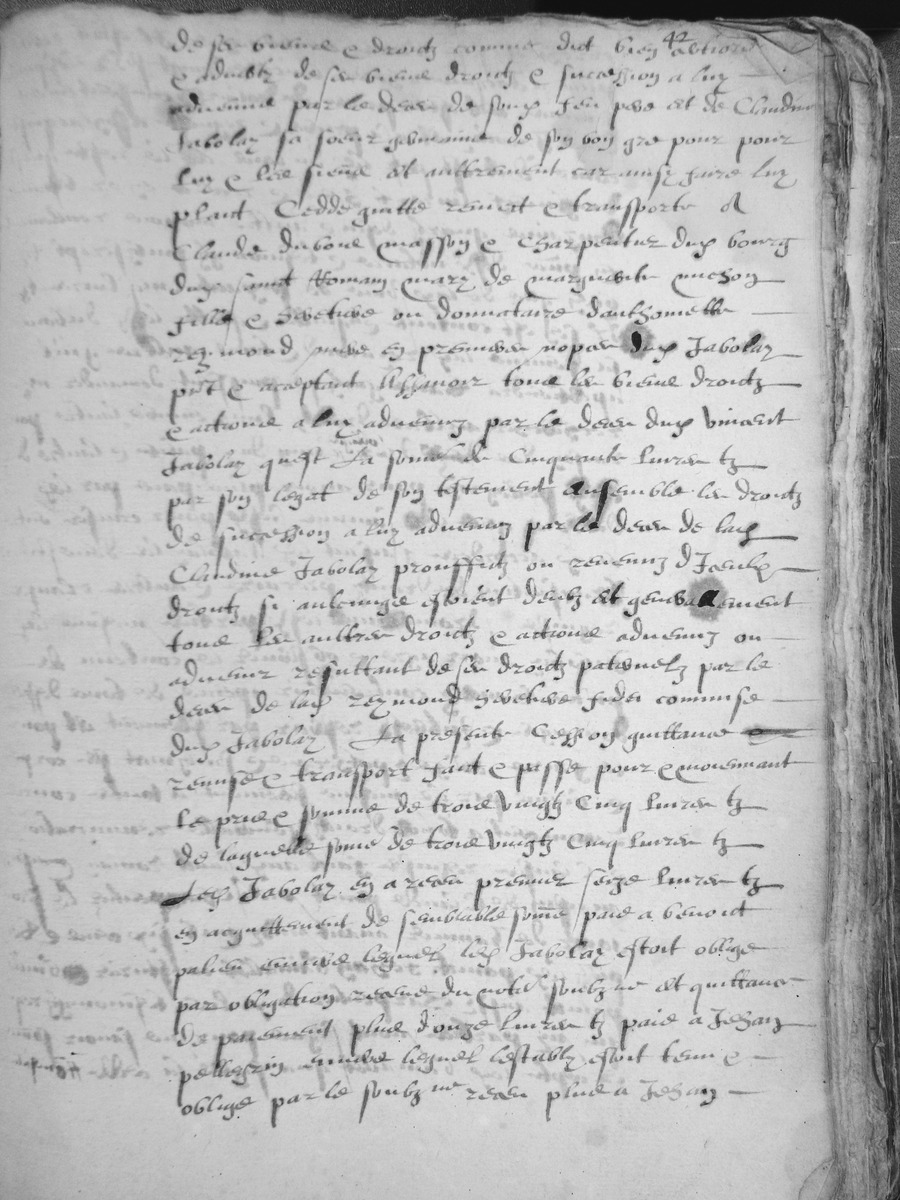 42
de ses biens & droictz comme dict bien actions
& advertz de ses biens droictz & succession a luy
advenue par le deces de son feu pere et de Claudine
Jabolay sa soeur germaine de son bon gre pour pour
luy & les siens et aultrement car ainsy faire luy
plaict Cedde quitte remect & transporte A
Claude dubone masson & Charpentier du bourg
dud sainct Romain mary de Marguerite michon
fille & heretiere ou donnataire danthoinette
reymond mere en premieres nopces dud Jabolay
pnt & aceptant Assavoir tous les biens droictz
& actions a luy advenuz par le deces dud vincent
Jabolay quest La some de Cinquante livres tz
par son legat de son testement ensemble les droictz
de succession a luy advenuz par le deces de lad
Claudine Jabolay prouffictz ou revenuz d'Iceulx
droictz si aulcungs estoient deubz et generallement
tous les aultres droictz & actions advenuz ou
advenir resultant de ses droictz paternelz par le
deces de lad reymond heretiere fidei commise
dud Jabolay La presente Cession quittance &
remise & transport faict & passe pour & moiennant
le pris & somme de trois vingtz Cinq livres tz
de laquelle some de trois vingtz Cinq livres tz
Led Jabolay en a receu premier seize livres tz
en acquittement de semblable some paie a benoict
palien envers lequel led Jabolay estoit oblige
par obligation receue du notre soubz ne et quittance
de paiement plus d'onze livres tz paie a Jehan
pellegrin envers lequel estoit tenu &
oblige par le soubz ne receu plus a Jehan